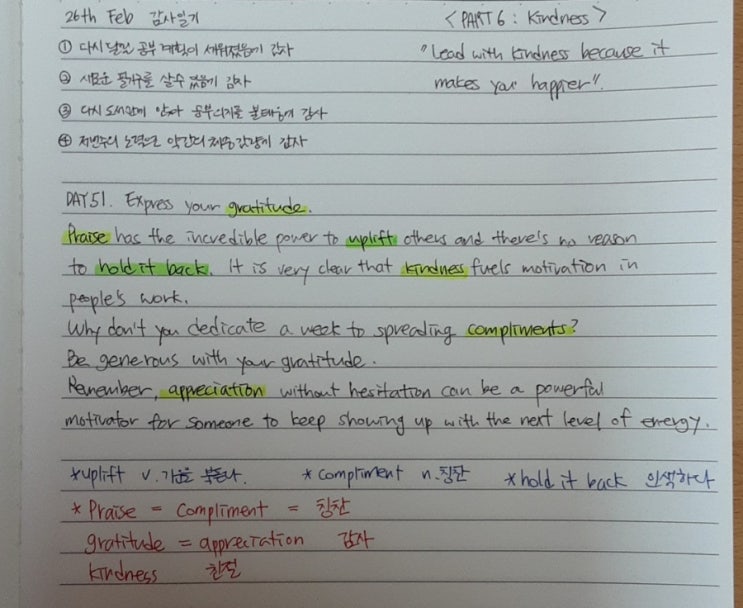 26th Feb 감사일기
<PART 6 : Kindness>
① 다시 달릴 공부 계획이 세워졌음에 감사
"Lead with kindness because it
② 새로운 필기구를 살 수 있음에 감사
makes you happier".
③ 다시 도서관에 앉아 공부의지를 불태움에 감사
④ 저번주의 노력으로 약간의 체중감량에 감사
DAY51. Express your gratitude.
Praise has the incredible power to uplift others and there's no reason
to hold it back. It is very clear that kindness fuels motivation in
people's work.
Why don't you dedicate a week to spreading compliments?
Be generous with your gratitude.
Remember, appreciation without hesitation can be a powerful
motivator for someone to keep showing up with the next level of energy.
*uplift v. 기운 북돋다. *compliment n. 칭찬 *hold it back 인색하다
* Praise = Compliment = 칭찬
gratitude = appreciation 감사
kindness 친절